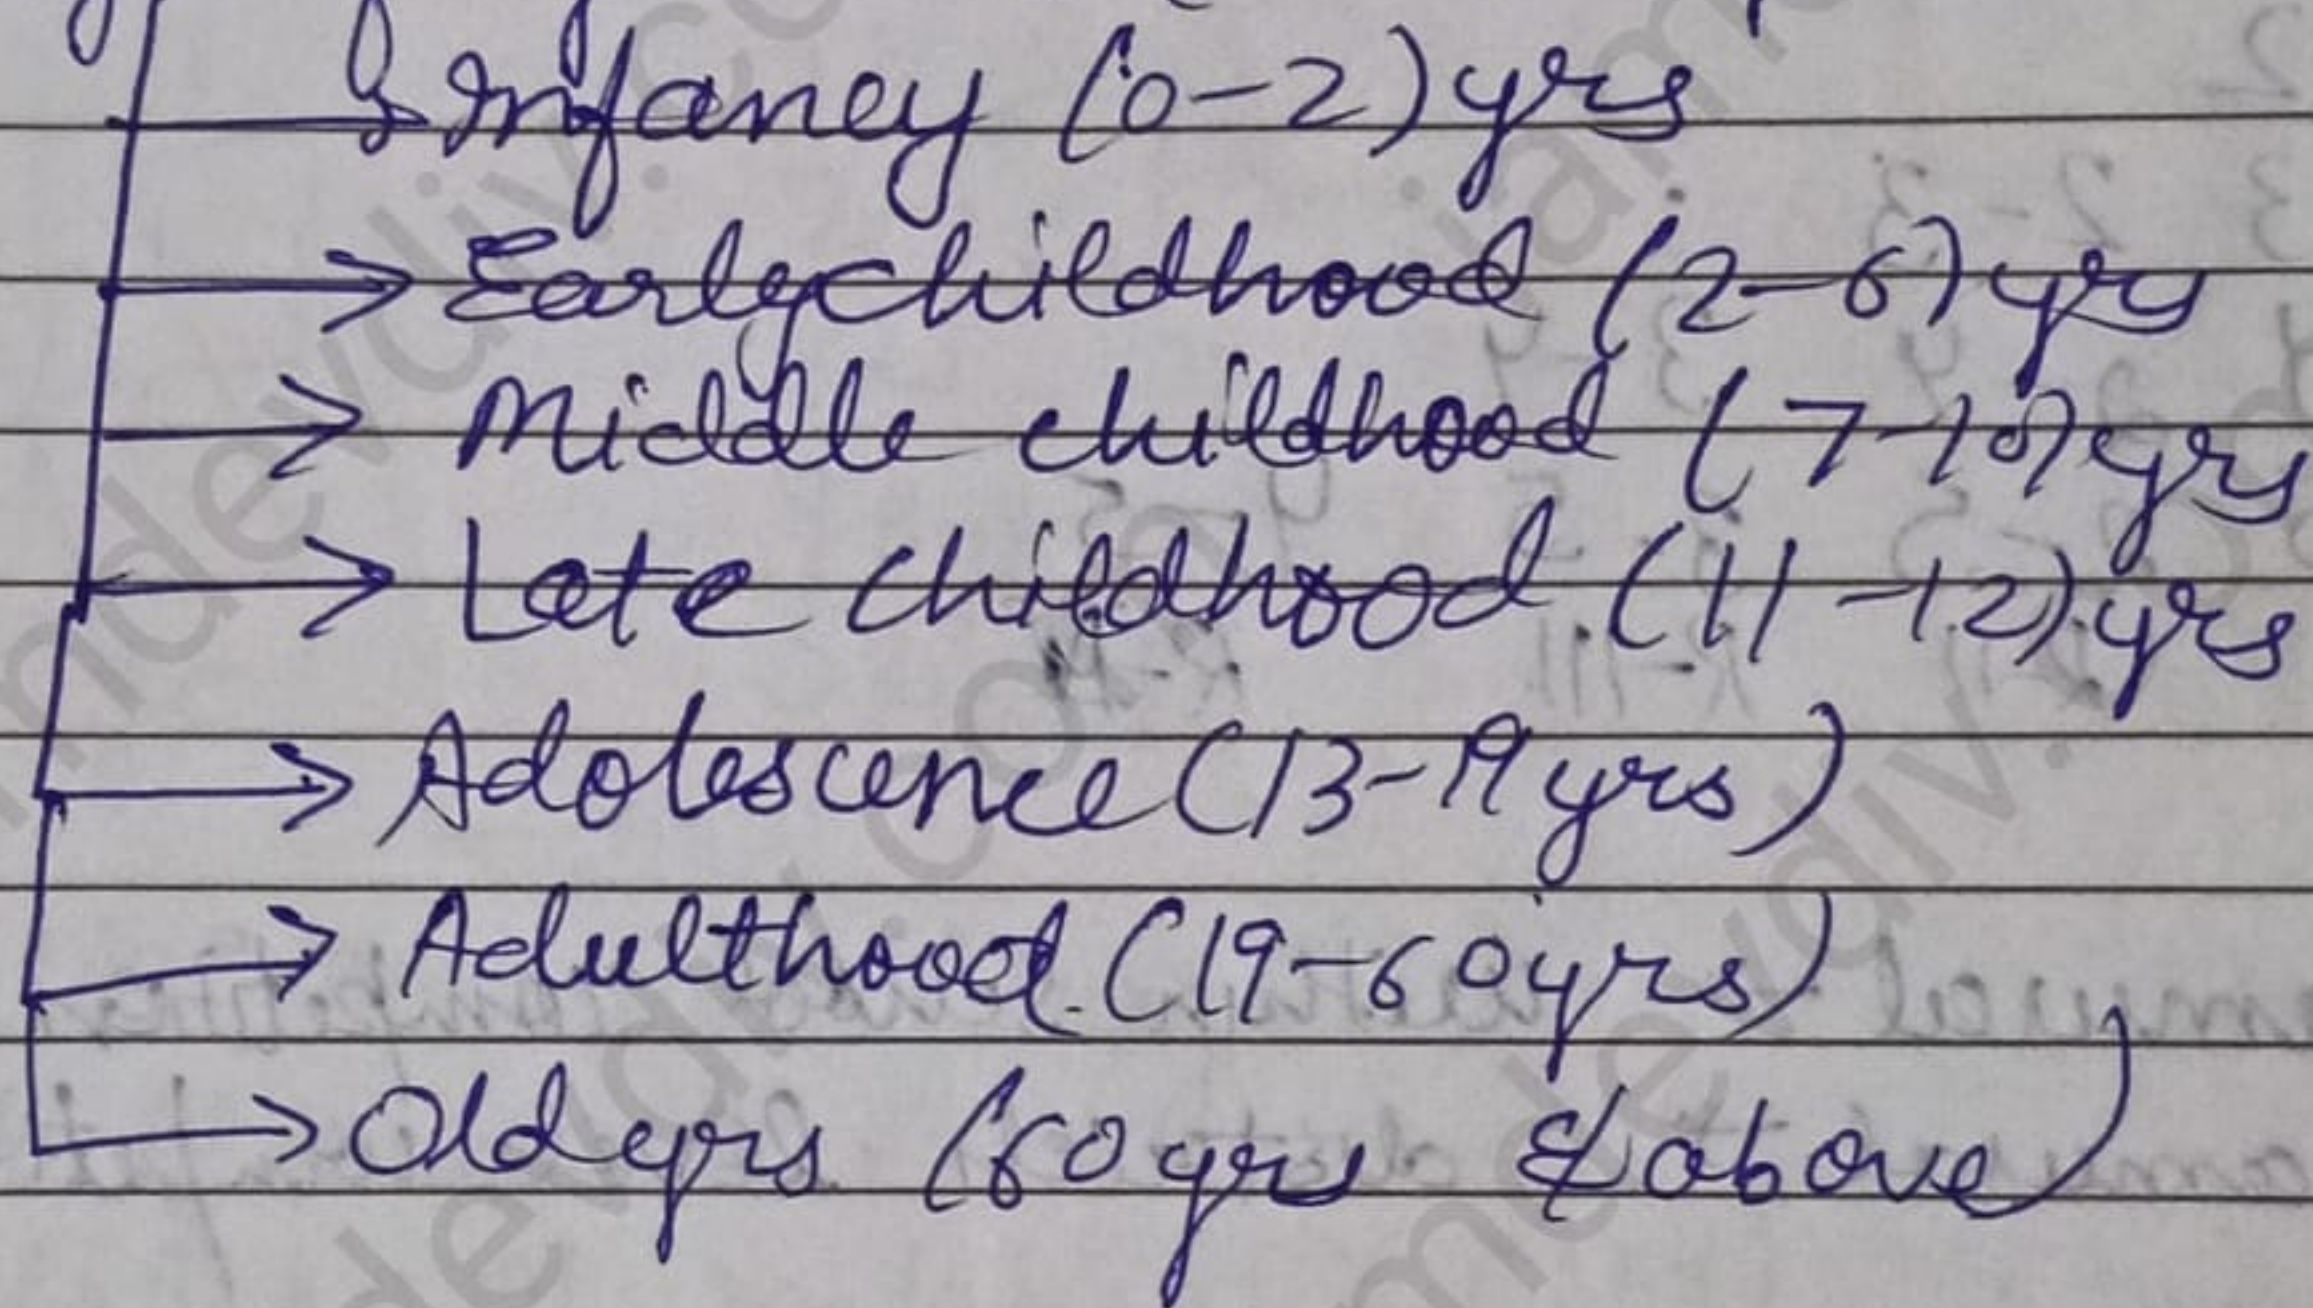 → Infancy (0-2) yrs
→ Early childhood (2-6) yrs
→ Middle childhood (7-10) yrs
→ Late childhood (11-12) yrs
→ Adolescence (13-19 yrs)
→ Adulthood (19-60 yrs)
→ Old yrs (60 yrs & above)